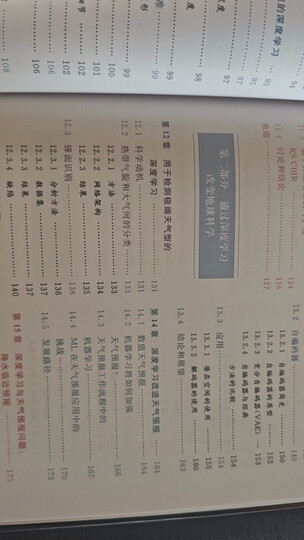 的深度学习
11.4 讨论和结论 126
致谢 127
第二部分 通过深度学习
改变地球科学
第12章 用于检测极端天气型的
深度学习 131
12.1 科学动机 131
12.2 热带气旋和大气河的分类 133
12.2.1 方法 133
12.2.2 网络架构 134
12.2.3 结果 135
12.3 锋面识别 136
12.3.1 分析方法 136
12.3.2 数据集 137
12.3.3 结果 137
12.3.4 缺陷 140
13.2 自编码器 149
13.2.1 自编码器简史 150
13.2.2 自编码器的类型 152
13.2.3 变分自编码器(VAE) 153
13.2.4 自编码器与经典
方法的比较 154
13.3 应用 154
13.3.1 潜在空间的使用 155
13.3.2 解码器的使用 160
13.4 结论和展望 163
第14章 深度学习改进天气预报 164
14.1 数值天气预报 164
14.2 机器学习将如何加强
天气预报? 166
14.3 天气预报工作流程中的
机器学习 167
14.4 ML在天气预报应用中的
挑战 170
14.5 发展路径 173
第15章 深度学习与天气预报问题:
降水临近预报 175